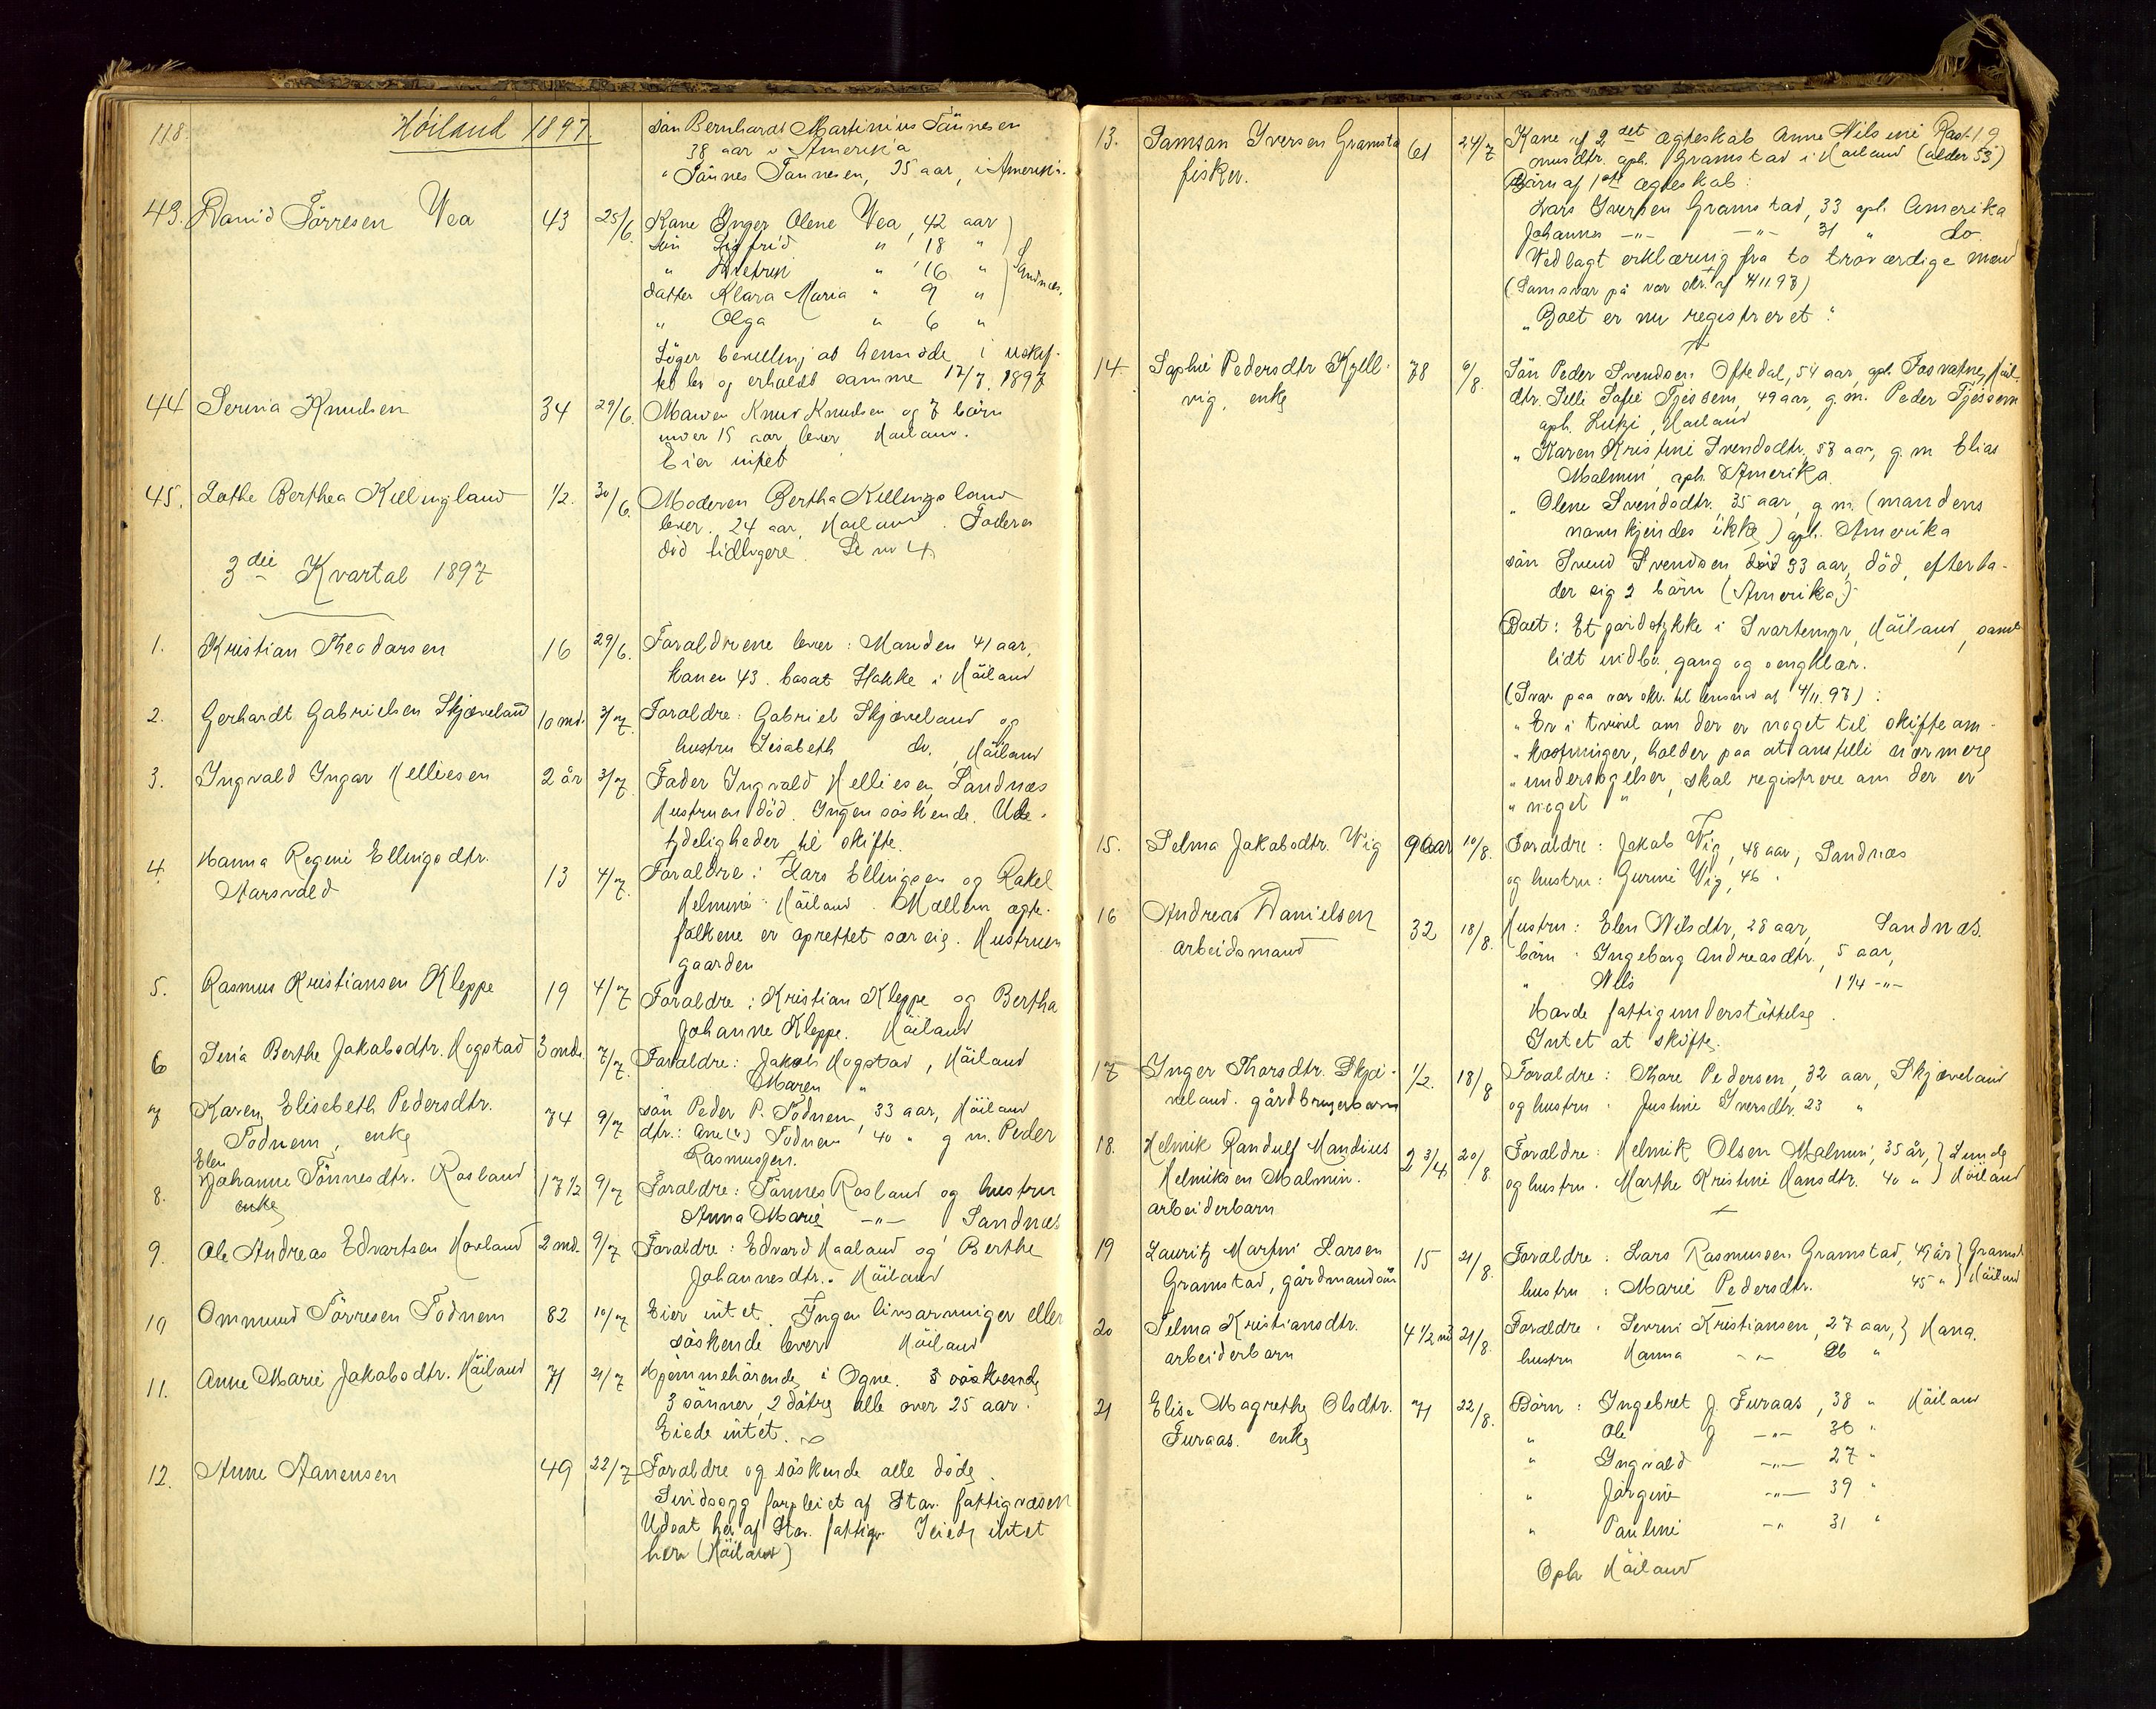 118.
Höiland 1897.
Sön Bernhardt Martinius Tönnesen
38 aar i Amerika
" Tönnes Tönnesen, 35 aar, i Amerika.
43. David Törresen Vea 43 25/6. Kone Inger Olene Vea, 42 aar
sön Sigfrid " 18 "
" " 16 " Sandnæs.
datter Klara Maria " 9 "
" Olga " 6 "
Söger bevilling at hensidde i uskif-
tet bo og erholdt samme 17/7. 1897
44 Serina Knudsen 34 29/6. Manden Knud Knudsen og 7 börn
under 15 aar lever Höiland.
Eier intet
45. Lothe Berthea Kellingland 1/2. 30/6. Moderen Bertha Kellingland
lever. 24 aar, Höiland. Faderen
död tidligere. Se nr 4.
3die Kvartal 1897
1. Kristian Theodorsen 16 29/6. Foraldrene lever: Manden 41 aar,
Konen 43. bosat Stokke i Höiland
2. Gerhardt Gabrielsen Skjæveland 10 md. 3/7. Foraldre: Gabriel Skjæveland og
hustru Lisabeth do, Höiland
3. Ingvald Ingar Helliesen 2 år 3/7. Fader Ingvald Helliesen, Sandnæs
Hustruen död. Ingen söskende. Ube-
tydeligheder til skifte.
4. Hanna Regine Ellingsdtr.
Aarsvold 13 4/7. Foraldre: Lars Ellingsen og Rakel
Helmine Höiland. Mellem ægte-
folkene er oprettet særeie. Hustruen
gaarden
5. Rasmus Kristiansen Kleppe 19 4/7 Foraldre: Kristian Kleppe og Bertha
Johanne Kleppe. Höiland
6 Sena Berthe Jakobsdtr. Hogstad 3 mdr. 7/7. Foraldre: Jakob Hogstad, Höiland
Maren "
7 Karen Elisebeth Pedersdtr.
Todnem, enke 74 9/7 sön Peder P. Todnem, 33 aar, Höiland
dtr.: Ane Todnem 40 " g m. Peder
Rasmussen.
8. Elen
Johanne Tönnesdtr. Rosland
enke 17 1/2 9/7 Foraldre: Tönnes Rosland og hustru
Anna Marie -"- Sandnæs
9. Ole Andreas Edvartsen Hovland 2 md. 9/7 Foraldre: Edvard Haaland og Berthe
Johannesdtr. Höiland
10 Ommund Törresen Todnem 82 10/7 Eier intet. Ingen livsarvinger eller
söskende lever Höiland
11. Anne Marie Jakobsdtr. Höiland 71 21/7 Hjemmehörende i Ogne. 5 söskende
3 sönner, 2 dötre alle over 25 aar.
Eiede intet.
12. Anne Aanensen 49 22/7 Foraldre og söskende alle döde.
Sindssyg forpleiet af Stav. fattigvæsen
Udsat her af Stav. fattigv. Eiede intet
her (Höiland)
13. Samson Iversen Gramstad
fisker. 61 24/7 Kone af 2det ægteskab Anne Nilsine Ras- 119
musdtr. oph. Gramstad i Höiland (alder 53)
Börn af 1ste ægteskab:
Lars Iversen Gramstad, 33 oph. Amerika
Johannes -"- -"- 31 " do.
Vedlagt erklæring fra to troværdige mænd
(Samsvar på vor skr. af 4/11 97)
"Boet er nu registreret".
14. Sophie Pedersdtr Kyll-
vig, enke 78 6/8. Sön Peder Svendsen Oftedal, 54 aar, oph. Fosvatne, Höil.
dtr. Silli Sofie Tjessem, 49 aar, g. m. Peder Tjessem
oph. Lutsi, Höiland
" Karen Kristine Svendsdtr, 53 aar, g. m Elias
Malmin, oph. Amerika.
" Olene Svendsdtr. 35 aar, g m. (mandens
navn kjendes ikke) oph. Amerika
sön Svend Svendsen död 33 aar, död, efterla-
der sig 2 börn (Amerika)
Boet: Et jordstykke i Svartemyr, Höiland, samt
lidt indbo, gang og sengklær.
(Svar paa vor skr. til lensmd af 4/11. 97):
"Er i tvivl om der er noget til skifteom-
"kostninger, holder paa at anstille nærmere
"undersögelser, skal registrere om der er
"noget"
15. Selma Jakobsdtr. Vig 9 aar 10/8. Foraldre: Jakob Vig, 48 aar, Sandnæs
og hustru: Gurine Vig, 46 "
16 Andreas Danielsen
arbeidsmand 32 18/8. Hustru: Elen Nilsdtr, 28 aar, Sandnæs.
börn: Ingeborg Andreasdtr., 5 aar,
" Nils 1 1/4 -"-
Havde fattigunderstöttelse.
Intet at skifte.
17 Inger Thorsdtr. Skjæ-
veland. gårdbrugerbarn 1/2. 18/8 Foraldre: Thore Pedersen, 32 aar, Skjæveland
og hustru: Justine Iversdtr. 23 "
18. Helmik Randulf Mandius
Helmiksen Malmin.
arbeiderbarn 2 3/4 20/8. Foraldre: Helmik Olsen Malmin, 35 år, Lunde
og hustru: Marthe Kristine Hansdtr. 40 " Höiland
19 Lauritz Martin Larsen
Gramstad, gårdmandsön 15 21/8. Foraldre: Lars Rasmussen Gramstad, 49 år Gramst.
hustru: Marie Pedersdtr. 45 " Höiland
20 Selma Kristiansdtr.
arbeiderbarn 4 1/2 md 21/8. Foraldre: Severin Kristiansen, 27 aar, Hana.
hustru Hanna -"- 26 "
21 Elise Magrethe Olsdtr.
Furaas. enke 71 22/8. Börn: Ingebret J. Furaas, 38 " Höiland
" Ole J -"- 36 "
" Ingvald -"- 27 "
" Jörgine -"- 39 "
" Pauline -"- 31 "
Oph. Höiland